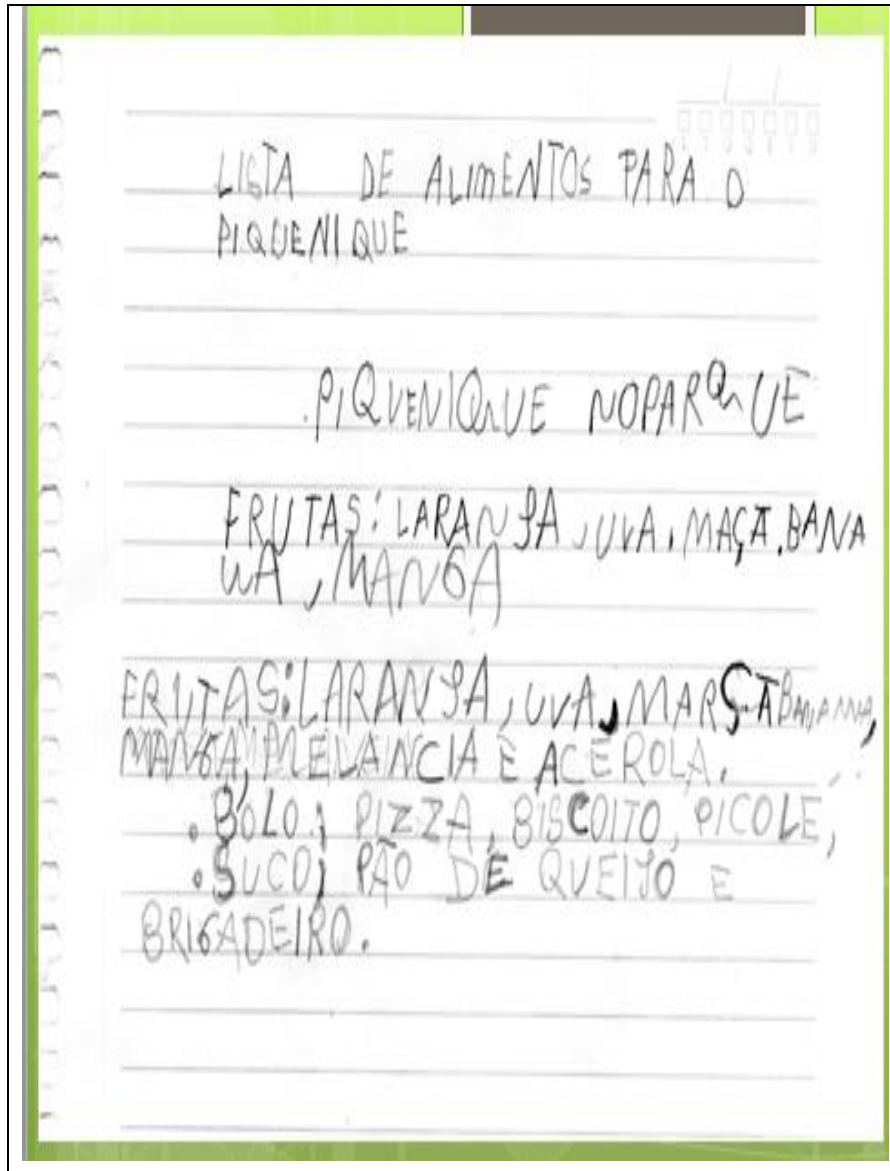 LISTA DE ALIMENTOS PARA O
PIQUENIQUE
.PIQUENIQUE NOPARQUE
FRUTAS: LARANJA, UVA, MAÇA, BANA
NA, MANGA
FRUTAS: LARANJA, UVA, MARÇÃ BANANA,
MANGA, MELANCIA E ACEROLA.
.BOLO; PIZZA, BISCOITO, PICOLE,
.SUCO; PÃO DE QUEIJO E
BRIGADEIRO.